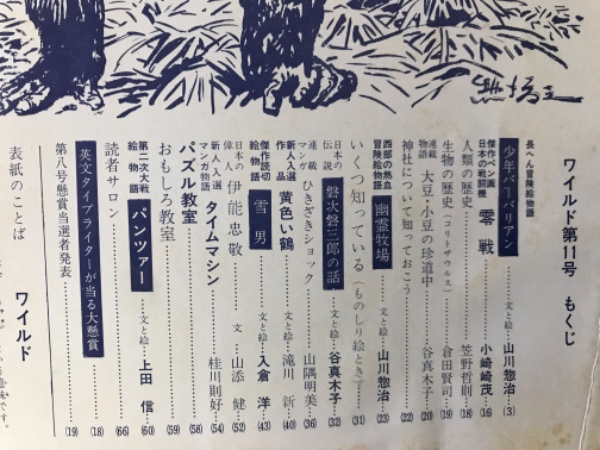 ワイルド第11号 もくじ
長へん冒険絵物語 少年バーバリアン……文と絵…山川惣治(3)
傑作ペン画 日本の戦闘機 零戦……小崎崎茂(16)
人類の歴史……笠野哲則(18)
生物の歴史(コリトザウルス)……倉田賢司(19)
連載物語 大豆・小豆の珍道中……谷真木子(20)
神社について知っておこう……(22)
西部の熱血冒険絵物語 幽霊牧場……文と絵…山川惣治(23)
いくつ知っている(ものしり絵とき)……(31)
日本の伝説 磐次磐三郎の話……文と絵…谷真木子(32)
連載マンガ ひきざきショック……山隅明美(36)
新人入選作品 黄色い鶴……滝川新(40)
傑作読切絵物語 雪男……文と絵…入倉洋(43)
日本の偉人 伊能忠敬……文…山添健(52)
新人入選マンガ物語 タイムマシン……桂川則好(54)
パズル教室……(58)
おもしろ教室……(59)
第二次大戦絵物語 パンツァー……文と絵…上田信(60)
読者サロン……(66)
英文タイプライターが当る大懸賞……(18)
第八号懸賞当選者発表……(19)
表紙のことば
ワイルド